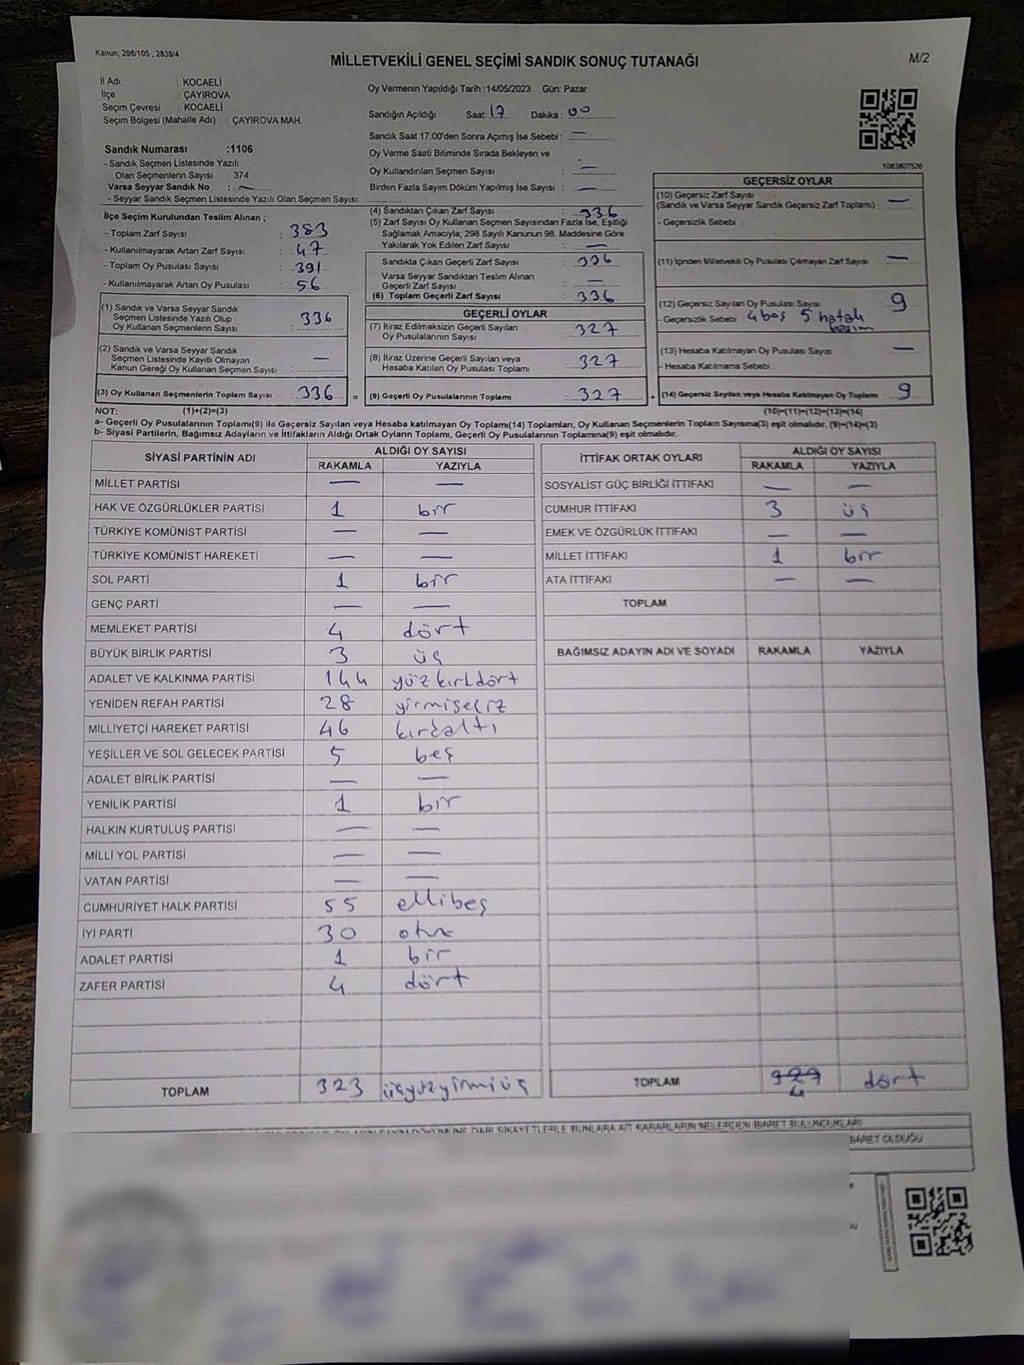 Kanun, 298/105 , 2839/4
MİLLETVEKİLİ GENEL SEÇİMİ SANDIK SONUÇ TUTANAĞI
M/2
İl Adı : KOCAELİ
İlçe : ÇAYIROVA
Seçim Çevresi : KOCAELİ
Seçim Bölgesi (Mahalle Adı) : ÇAYIROVA MAH.
Sandık Numarası :1106
- Sandık Seçmen Listesinde Yazılı
Olan Seçmenlerin Sayısı : 374
Varsa Seyyar Sandık No : —
- Seyyar Sandık Seçmen Listesinde Yazılı Olan Seçmen Sayısı:
Oy Vermenin Yapıldığı Tarih :14/05/2023 Gün: Pazar
Sandığın Açıldığı Saat: 17 Dakika : 00
Sandık Saat 17:00'den Sonra Açımış İse Sebebi : —
Oy Verme Saati Bitiminde Sırada Bekleyen ve
Oy Kullandırılan Seçmen Sayısı : —
Birden Fazla Sayım Döküm Yapılmış İse Sayısı : —
1083807526
İlçe Seçim Kurulundan Teslim Alınan ;
- Toplam Zarf Sayısı : 383
- Kullanılmayarak Artan Zarf Sayısı : 47
- Toplam Oy Pusulası Sayısı : 391
- Kullanılmayarak Artan Oy Pusulası : 56
(1) Sandık ve Varsa Seyyar Sandık
Seçmen Listesinde Yazılı Olup
Oy Kullanan Seçmenlerin Sayısı : 336
(2) Sandık ve Varsa Seyyar Sandık
Seçmen Listesinde Kayıtlı Olmayan
Kanun Gereği Oy Kullanan Seçmen Sayısı : —
(3) Oy Kullanan Seçmenlerin Toplam Sayısı : 336 =
(4) Sandıktan Çıkan Zarf Sayısı : 336
(5) Zarf Sayısı Oy Kullanan Seçmen Sayısından Fazla İse, Eşitliği
Sağlamak Amacıyla; 298 Sayılı Kanunun 98. Maddesine Göre
Yakılarak Yok Edilen Zarf Sayısı : —
Sandıkta Çıkan Geçerli Zarf Sayısı : 336
Varsa Seyyar Sandıktan Teslim Alınan
Geçerli Zarf Sayısı : —
(6) Toplam Geçerli Zarf Sayısı : 336
GEÇERLİ OYLAR
(7) İtiraz Edilmeksizin Geçerli Sayılan
Oy Pusulalarının Sayısı : 327
(8) İtiraz Üzerine Geçerli Sayılan veya
Hesaba Katılan Oy Pusulası Toplamı : 327
(9) Geçerli Oy Pusulalarının Toplamı : 327 +
GEÇERSİZ OYLAR
(10) Geçersiz Zarf Sayısı
(Sandık ve Varsa Seyyar Sandık Geçersiz Zarf Toplamı) : —
- Geçersizlik Sebebi :
(11) İçinden Milletvekili Oy Pusulası Çıkmayan Zarf Sayısı —
(12) Geçersiz Sayılan Oy Pusulası Sayısı : 9
- Geçersizlik Sebebi 4 boş 5 hatalı
basım
(13) Hesaba Katılmayan Oy Pusulası Sayısı : —
- Hesaba Katılmama Sebebi :
(14) Geçersiz Sayılan veya Hesaba Katılmayan Oy Toplamı : 9
NOT: (1)+(2)=(3) (10)+(11)+(12)+(13)=(14)
a- Geçerli Oy Pusulalarının Toplamı(9) ile Geçersiz Sayılan veya Hesaba katılmayan Oy Toplamı(14) Toplamları, Oy Kullanan Seçmenlerin Toplam Sayısına(3) eşit olmalıdır. (9)+(14)=(3)
b- Siyasi Partilerin, Bağımsız Adayların ve İttifakların Aldığı Ortak Oyların Toplamı, Geçerli Oy Pusulalarının Toplamına(9) eşit olmalıdır.
SİYASİ PARTİNİN ADI ALDIĞI OY SAYISI
RAKAMLA YAZIYLA
MİLLET PARTİSİ — —
HAK VE ÖZGÜRLÜKLER PARTİSİ 1 bir
TÜRKİYE KOMÜNİST PARTİSİ — —
TÜRKİYE KOMÜNİST HAREKETİ — —
SOL PARTİ 1 bir
GENÇ PARTİ — —
MEMLEKET PARTİSİ 4 dört
BÜYÜK BİRLİK PARTİSİ 3 üç
ADALET VE KALKINMA PARTİSİ 144 yüzkırkdört
YENİDEN REFAH PARTİSİ 28 yirmisekiz
MİLLİYETÇİ HAREKET PARTİSİ 46 kırkaltı
YEŞİLLER VE SOL GELECEK PARTİSİ 5 beş
ADALET BİRLİK PARTİSİ — —
YENİLİK PARTİSİ 1 bir
HALKIN KURTULUŞ PARTİSİ — —
MİLLİ YOL PARTİSİ — —
VATAN PARTİSİ — —
CUMHURİYET HALK PARTİSİ 55 ellibeş
İYİ PARTİ 30 otuz
ADALET PARTİSİ 1 bir
ZAFER PARTİSİ 4 dört
TOPLAM 323 üçyüzyirmiüç
İTTİFAK ORTAK OYLARI ALDIĞI OY SAYISI
RAKAMLA YAZIYLA
SOSYALİST GÜÇ BİRLİĞİ İTTİFAKI — —
CUMHUR İTTİFAKI 3 üç
EMEK VE ÖZGÜRLÜK İTTİFAKI — —
MİLLET İTTİFAKI 1 bir
ATA İTTİFAKI — —
TOPLAM
BAĞIMSIZ ADAYIN ADI VE SOYADI RAKAMLA YAZIYLA
TOPLAM 327 4 dört